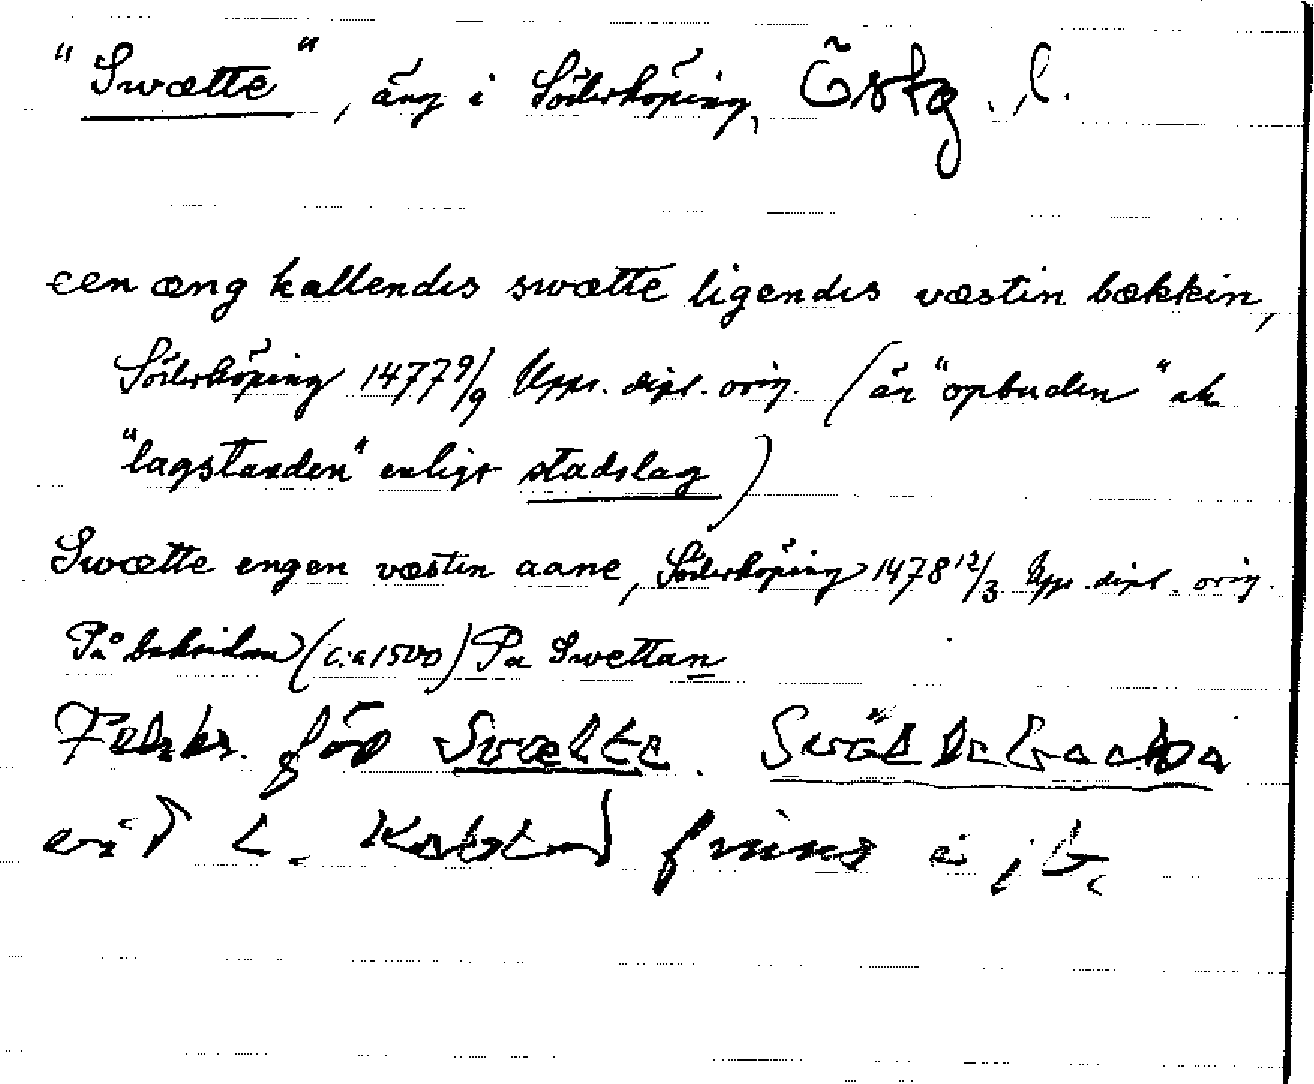 "Swætte", äng i Söderköping, Östg. l.
een æng kallendis swætte ligendis væstin bækkin,
Söderköping 1477 9/9 Upps. dipl. orig. (är "opbuden" ok
"lagstanden" enligt stadslag)
Swætte engen væstin aane, Söderköping 1478 12/3 Upps. dipl. orig.
På baksidan (c:a 1500) Pa Swettan
för Swælte. Svältebacka
vid L. finns i